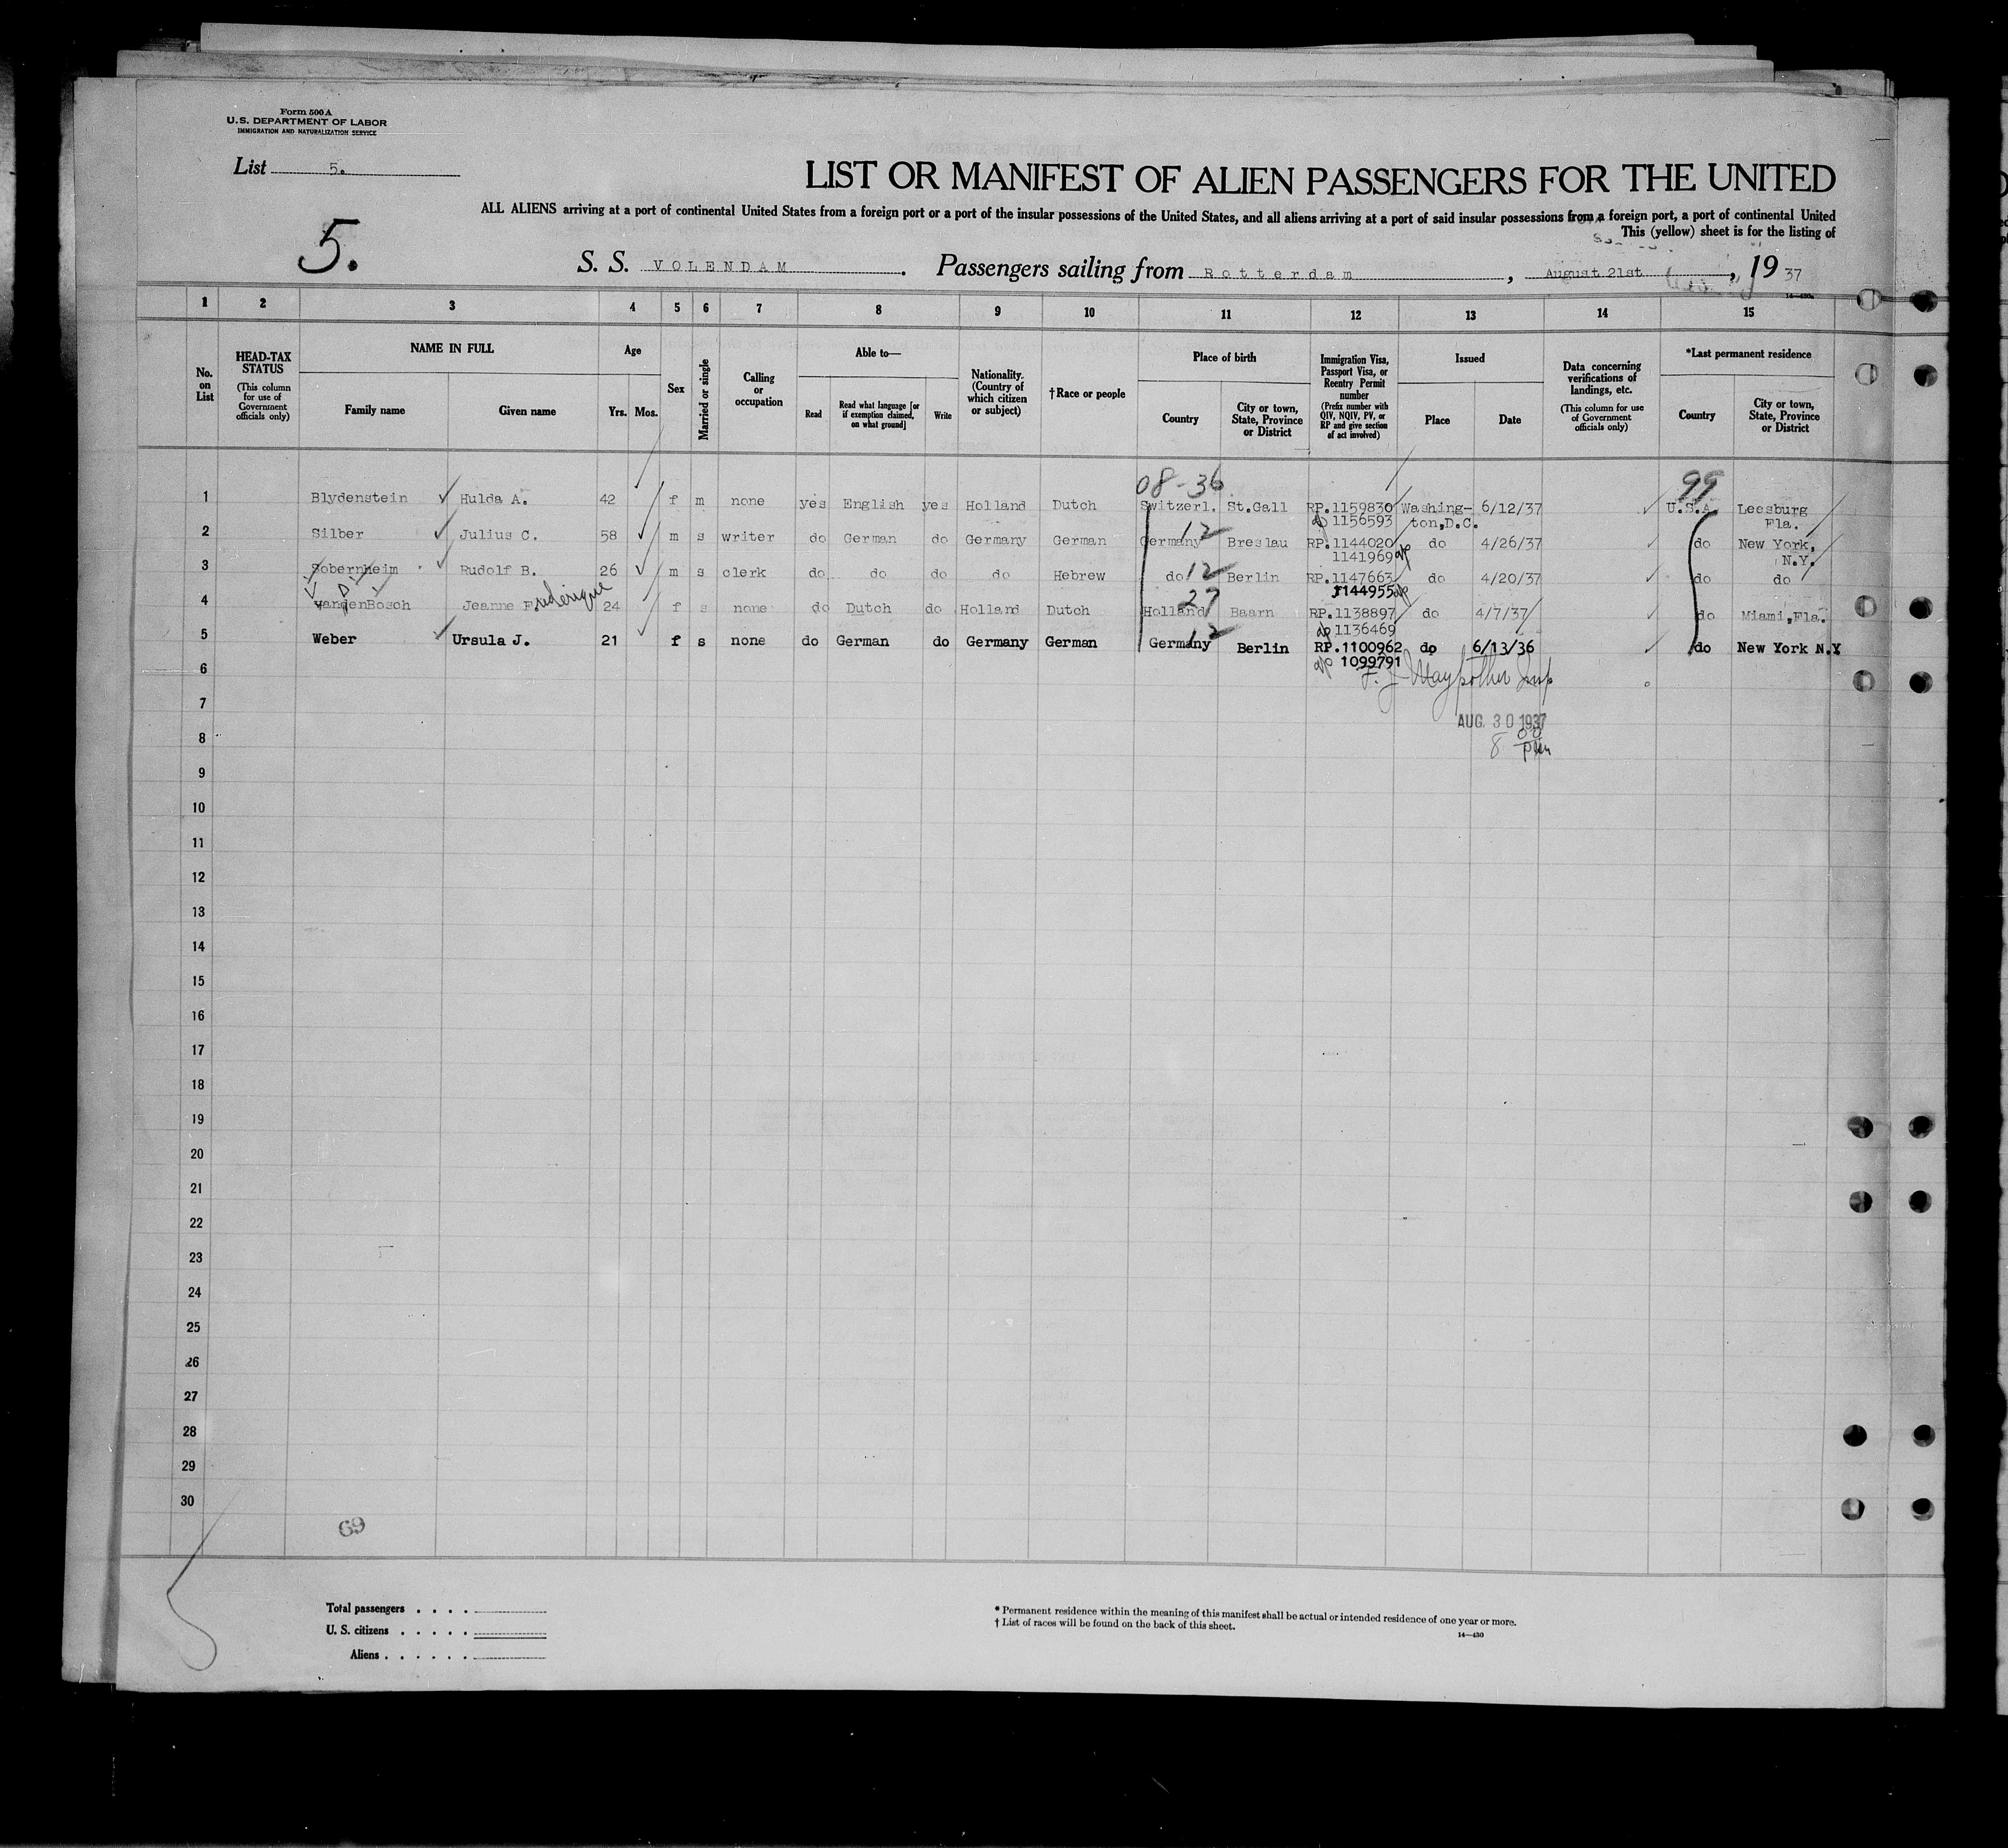 Form 500 A
U.S. DEPARTMENT OF LABOR
IMMIGRATION AND NATURALIZATION SERVICE
List 5.
LIST OR MANIFEST OF ALIEN PASSENGERS FOR THE UNITED
ALL ALIENS arriving at a port of continental United States from a foreign port or a port of the insular possessions of the United States, and all aliens arriving at a port of said insular possessions from a foreign port, a port of continental United
This (yellow) sheet is for the listing of
5.
S. S. VOLENDAM . Passengers sailing from Rotterdam , August 21st , 19 37
14—430
1 2 3 4 5 6 7 8 9 10 11 12 13 14 15
No. on List
HEAD-TAX STATUS
(This column for use of Government officials only)
NAME IN FULL
Family name Given name
Age
Yrs. Mos.
Sex
Married or single
Calling or occupation
Able to—
Read
Read what language [or if exemption claimed, on what ground]
Write
Nationality. (Country of which citizen or subject)
†Race or people
Place of birth
Country
City or town, State, Province or District
Immigration Visa, Passport Visa, or Reentry Permit number
(Prefix number with QIV, NQIV, PV, or RP and give section of act involved)
Issued
Place Date
Data concerning verifications of landings, etc.
(This column for use of Government officials only)
*Last permanent residence
Country
City or town, State, Province or District
08-36 99
1 Blydenstein Hulda A. 42 f m none yes English yes Holland Dutch Switzerl. St.Gall RP.1159830 Washing- 6/12/37 U.S.A. Leesburg
1156593 ton,D.C. Fla.
12
2 Silber Julius C. 58 m s writer do German do Germany German Germany Breslau RP.1144020 do 4/26/37 do New York,
1141969 N.Y.
12
3 Sobernheim Rudolf B. 26 m s clerk do do do do Hebrew do Berlin RP.1147663 do 4/20/37 do do
1144955
27
4 VandenBosch Jeanne Frederique 24 f s none do Dutch do Holland Dutch Holland Baarn RP.1138897 do 4/7/37 do Miami,Fla.
1136469
12
5 Weber Ursula J. 21 f s none do German do Germany German Germany Berlin RP.1100962 do 6/13/36 do New York N.Y
1099791
6
7
AUG 30 1937
8
8 00 pm
9
10
11
12
13
14
15
16
17
18
19
20
21
22
23
24
25
26
27
28
29
30
69
Total passengers . . . .
U. S. citizens . . . . .
Aliens . . . . . .
* Permanent residence within the meaning of this manifest shall be actual or intended residence of one year or more.
† List of races will be found on the back of this sheet.
14—430